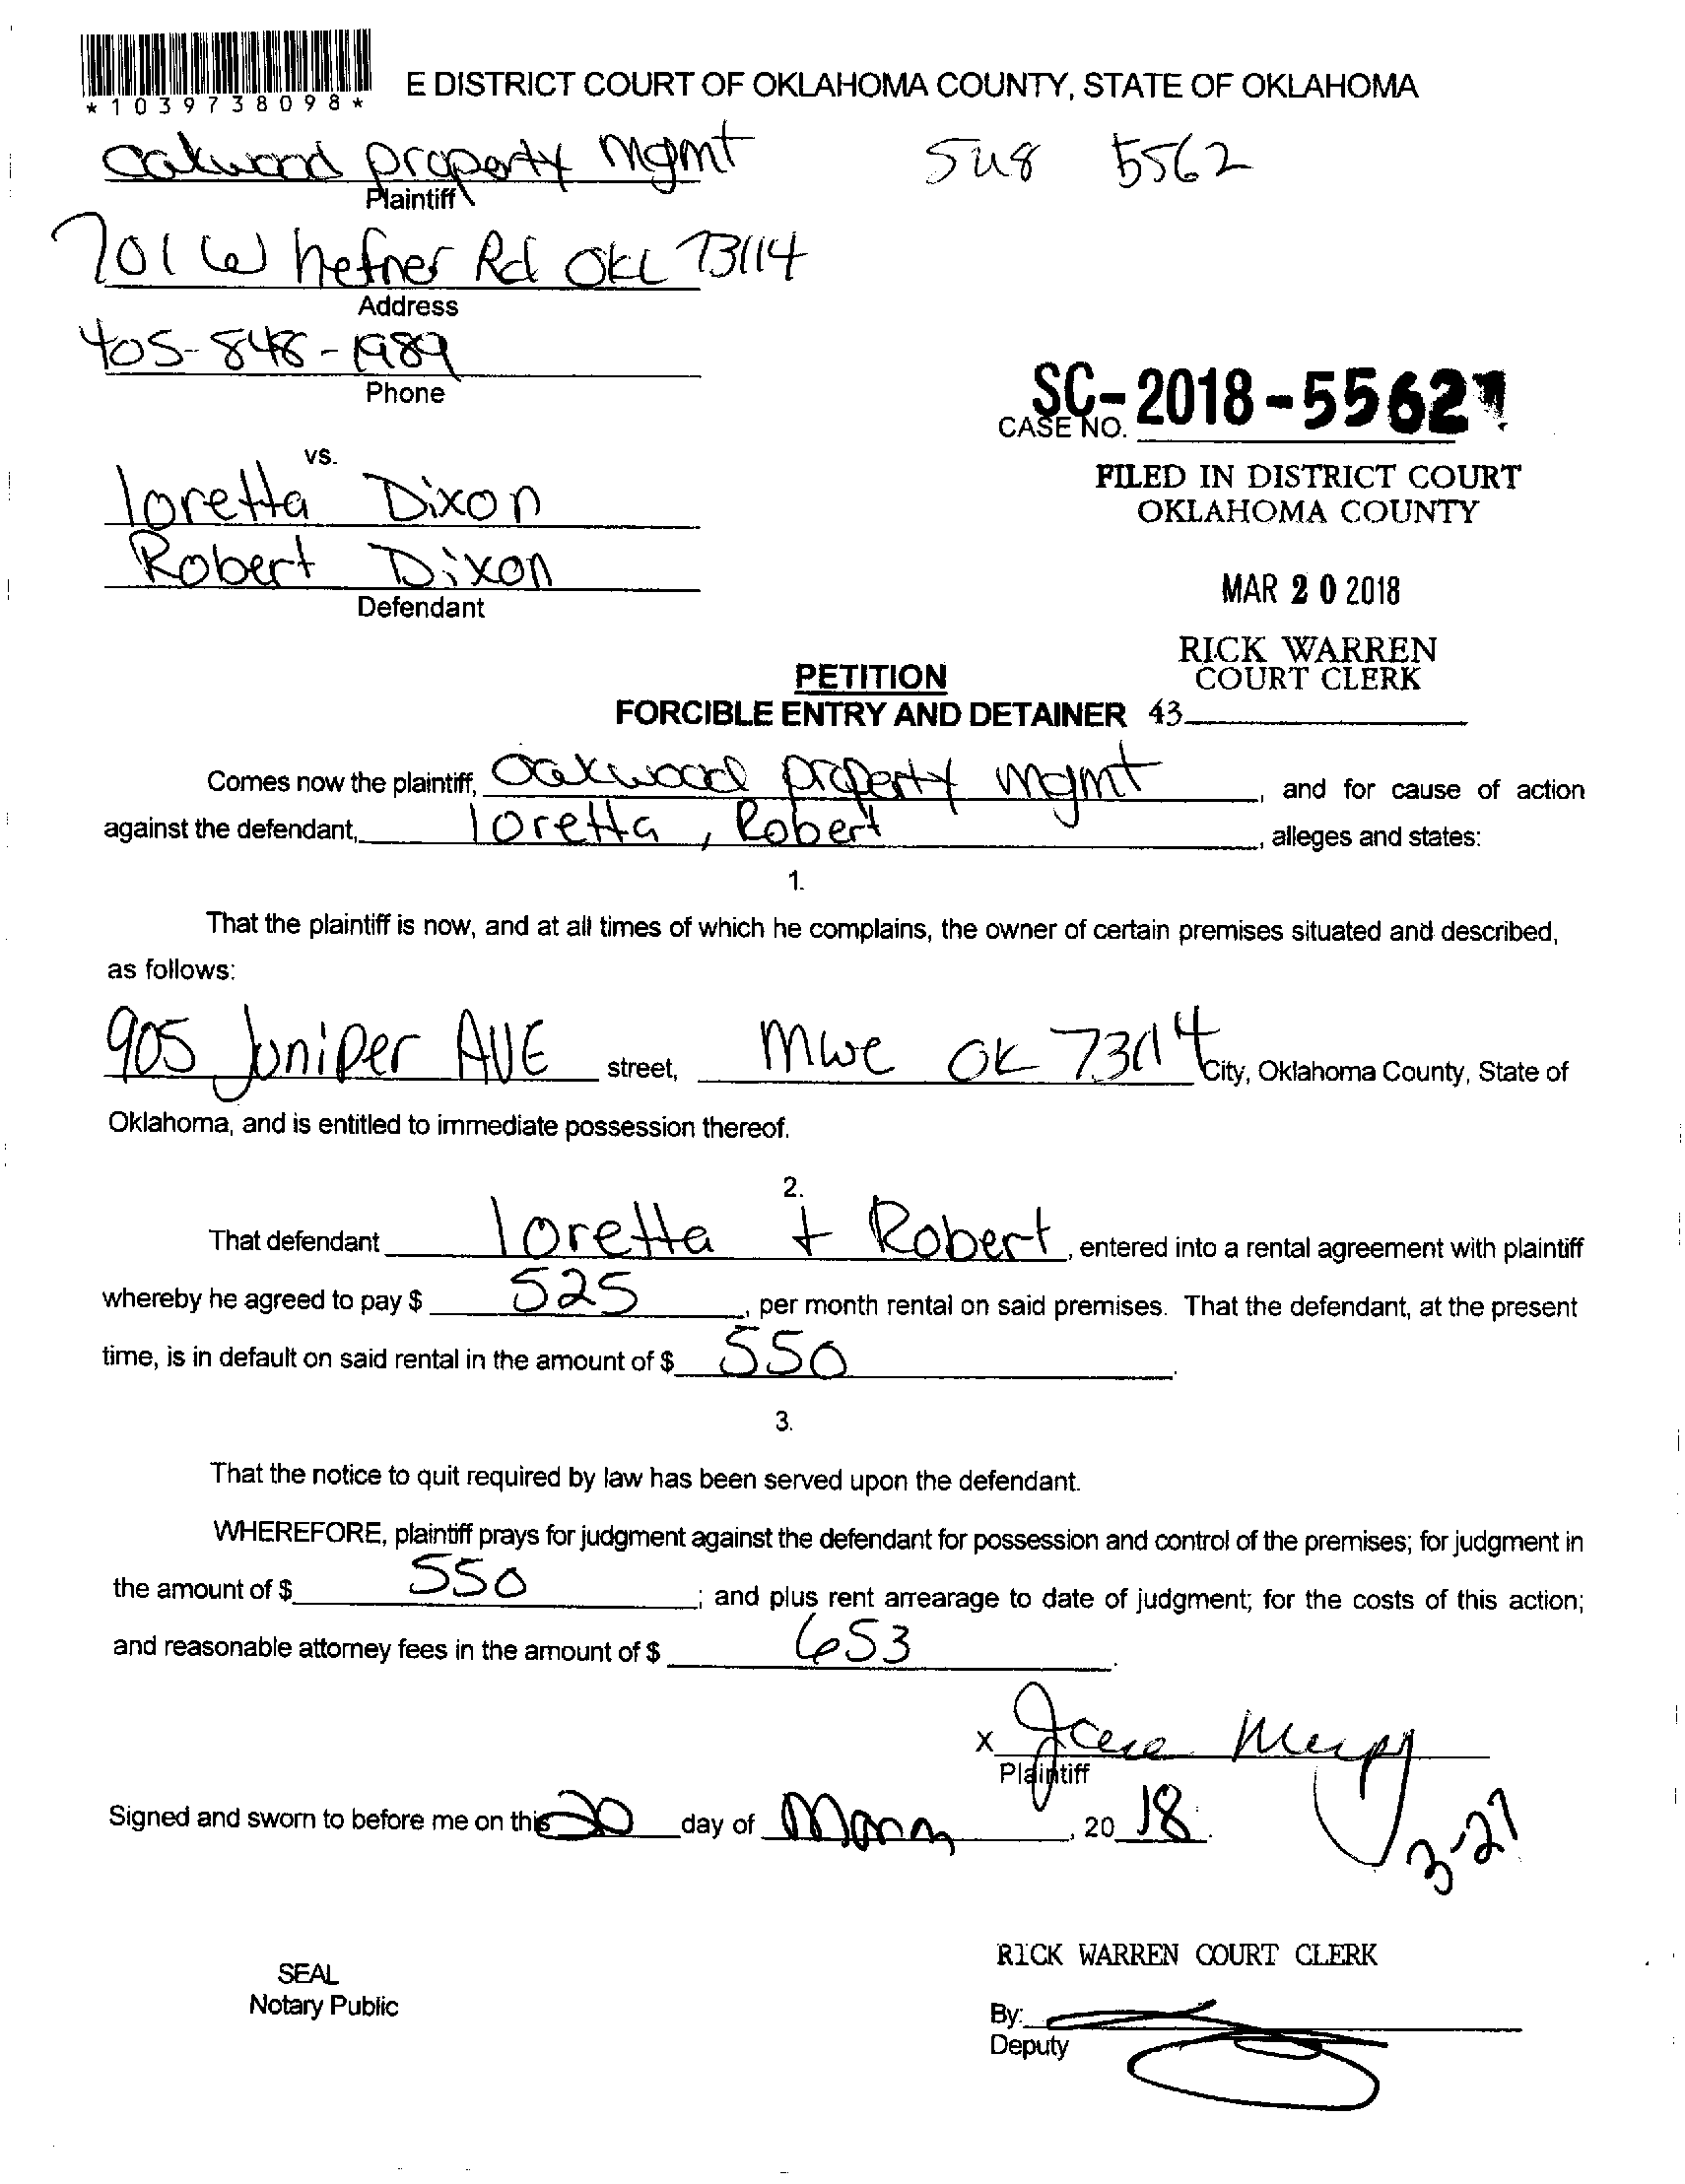 *1039738098*
E DISTRICT COURT OF OKLAHOMA COUNTY, STATE OF OKLAHOMA
Oakwood property Mgmt
5562
Plaintiff
701 W hefner Rd OKC 73114
Address
405-848-1989
Phone
SC-2018-5562
CASE NO.
vs.
loretta Dixon
FILED IN DISTRICT COURT
OKLAHOMA COUNTY
Robert Dixon
Defendant
MAR 20 2018
RICK WARREN
COURT CLERK
PETITION
FORCIBLE ENTRY AND DETAINER 43
Comes now the plaintiff, Oakwood property mgmt, and for cause of action
against the defendant, loretta, Robert, alleges and states:
1.
That the plaintiff is now, and at all times of which he complains, the owner of certain premises situated and described,
as follows:
905 Juniper AVE street, MWC OK 73114 City, Oklahoma County, State of
Oklahoma, and is entitled to immediate possession thereof.
2.
That defendant loretta + Robert, entered into a rental agreement with plaintiff
whereby he agreed to pay $ 525, per month rental on said premises. That the defendant, at the present
time, is in default on said rental in the amount of $ 550.
3.
That the notice to quit required by law has been served upon the defendant.
WHEREFORE, plaintiff prays for judgment against the defendant for possession and control of the premises; for judgment in
the amount of $ 550; and plus rent arrearage to date of judgment; for the costs of this action;
and reasonable attorney fees in the amount of $ 653.
X
Plaintiff
Signed and sworn to before me on this 20 day of, 20 18.
3-27
RICK WARREN COURT CLERK
SEAL
Notary Public
By:
Deputy